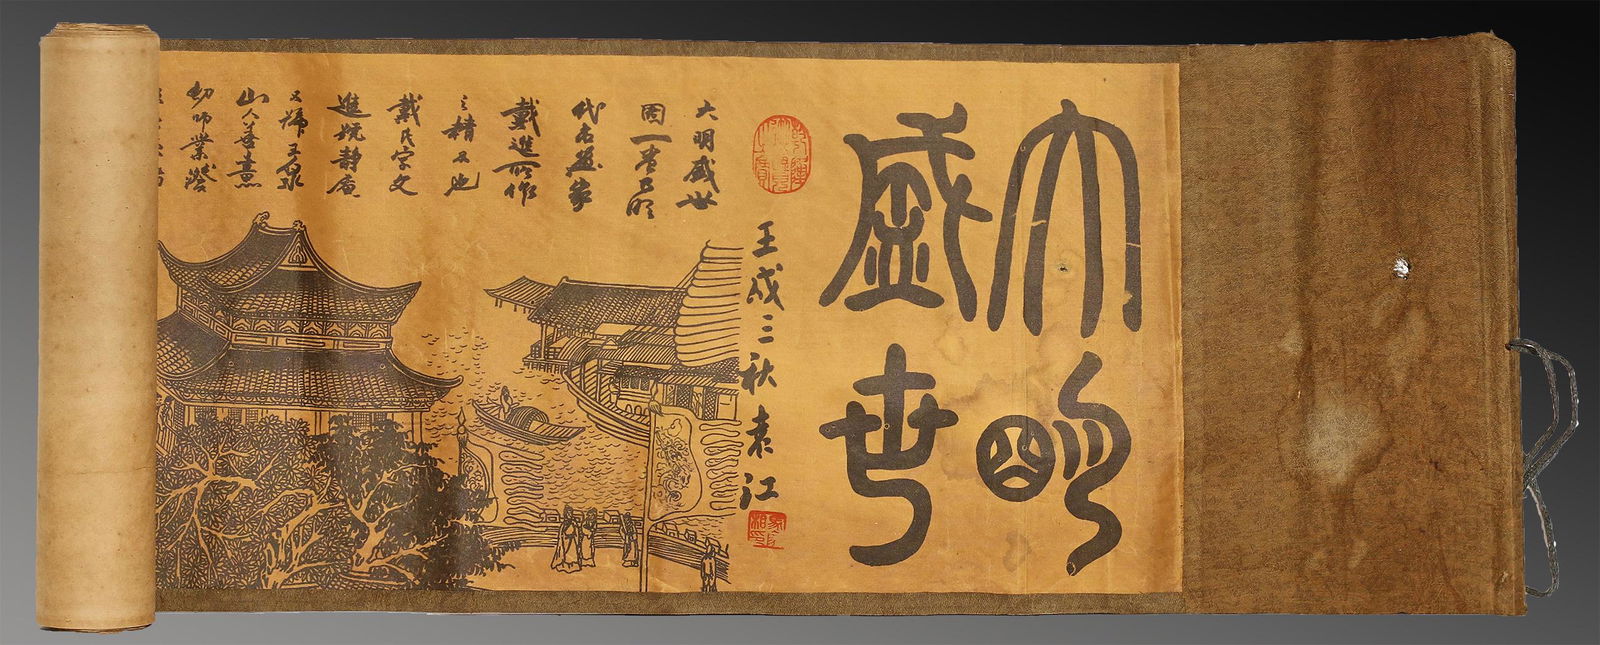 大明
盛世
壬戌三秋袁江
大明盛世
圖一卷乃明
代名畫家
戴進所作
之精品也
戴氏字文
進號靜庵
又號玉泉
山人善畫
幼師業